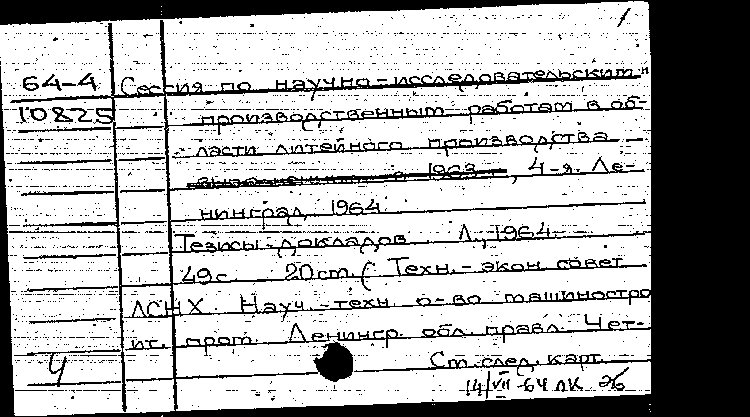 1
64-4 Сессия по научно-исследовательским и
10825 производственным работам в об-
ласти литейного производства
выполненным в 1963 г., 4-я. Ле-
нинград, 1964
Тезисы докладов. Л., 1964.
49с. 20см. (Техн.-экон. совет
ЛСНХ. Науч.-техн. о-во машиностро
ит. пром. Ленингр. обл. правл. Чет-
Ч Ст. след. карт.
14/VII-64 ЛК